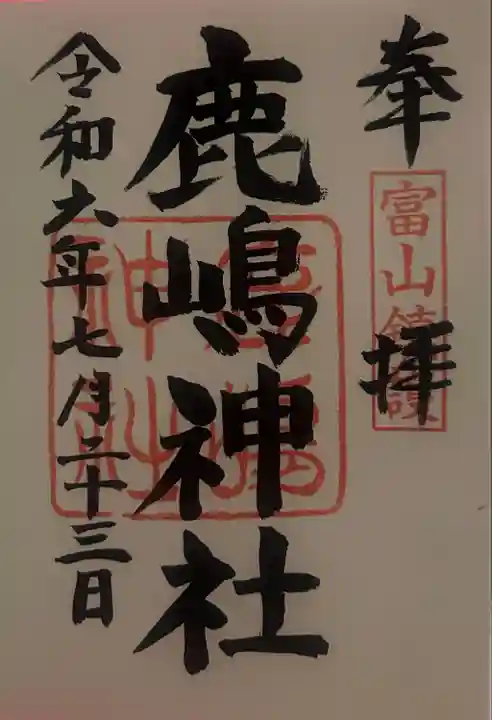 奉拝
富山鎮護
鹿嶋神社
令和六年七月二十三日